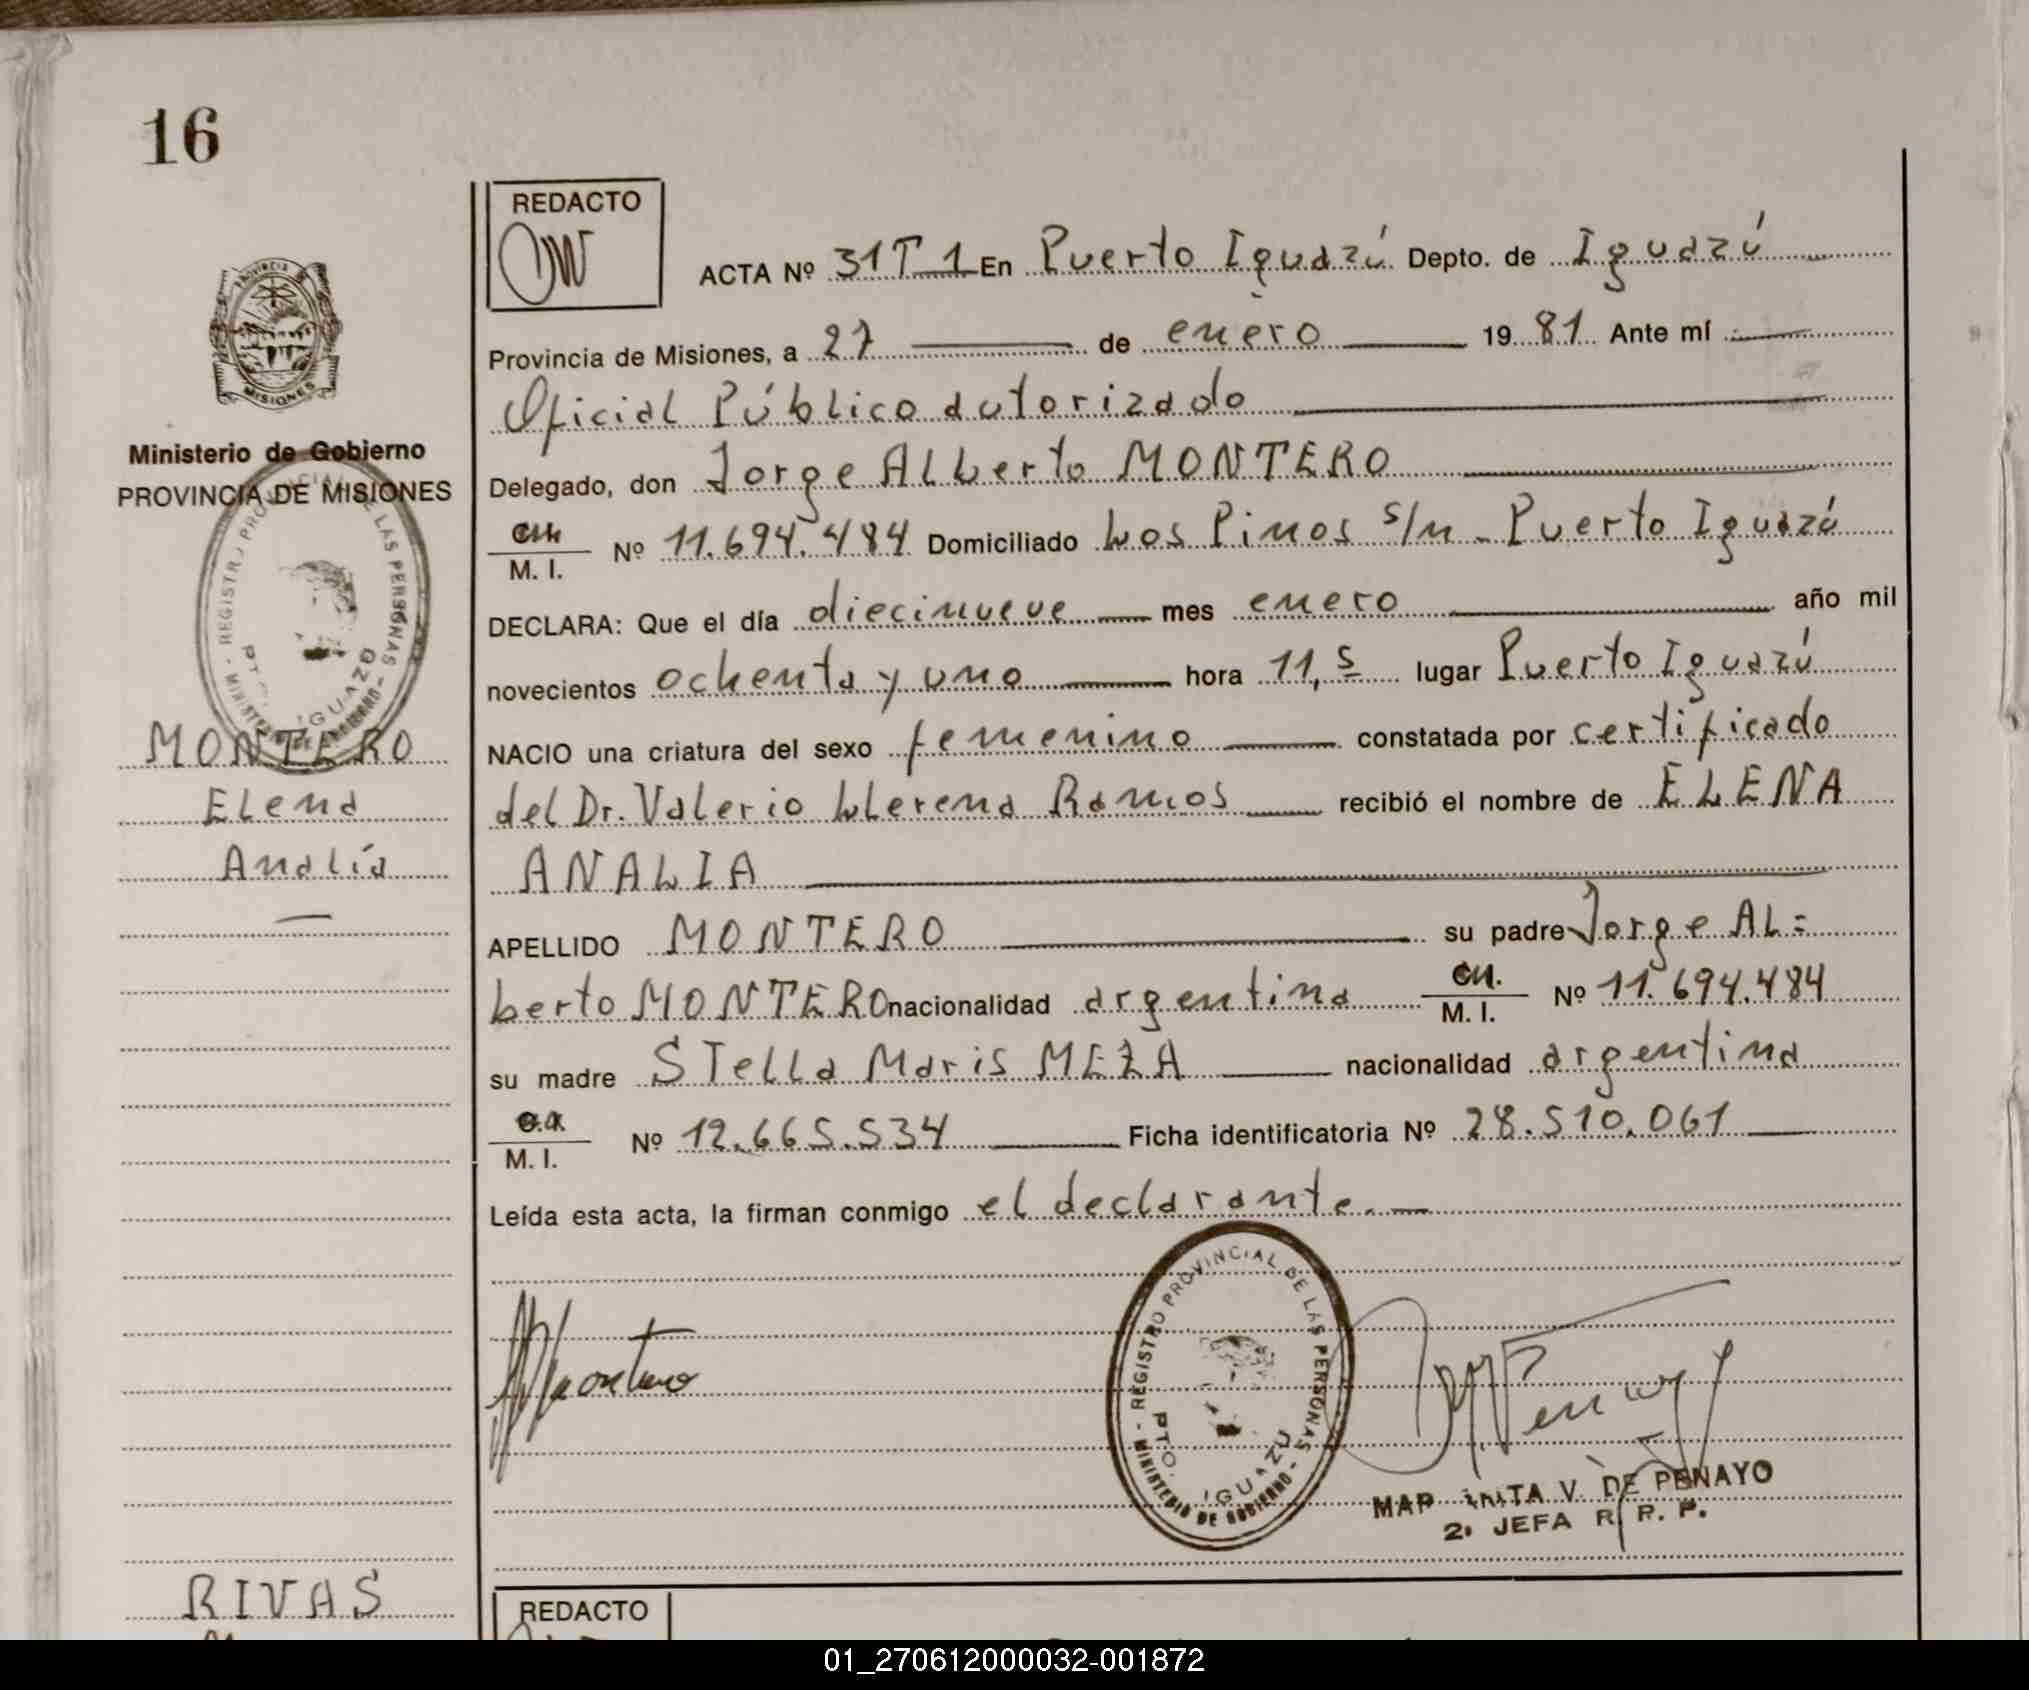 16
REDACTO
ACTA Nº 31 T 1 En Puerto Iguazú Depto. de Iguazú
Provincia de Misiones, a 27 de enero 1981 Ante mí
Oficial Público autorizado
Delegado, don Jorge ALberto MONTERO
M. I. Nº 11.694.484 Domiciliado Los Pinos s/n - Puerto Iguazú
DECLARA: Que el día diecinueve mes enero año mil
novecientos ochenta y uno hora 11,5 lugar Puerto Iguazú
NACIO una criatura del sexo femenino constatada por certificado
del Dr. Valerio LLerena Ramos recibió el nombre de ELENA
ANALIA
APELLIDO MONTERO su padre Jorge AL=
berto MONTERO nacionalidad argentina M. I. Nº 11.694.484
su madre STella Maris MEZA nacionalidad argentina
M. I. Nº 12.665.534 Ficha identificatoria Nº 28.510.061
Leída esta acta, la firman conmigo el declarante.
REGISTRO PROVINCIAL DE LAS PERSONAS
PTO. IGUAZU
- MINISTERIO DE GOBIERNO -
V. DE PENAYO
2º JEFA R. P. P.
PROVINCIA
MISIONES
Ministerio de Gobierno
PROVINCIA DE MISIONES
MONTERO
ELena
Analía
RIVAS
REDACTO
01_270612000032-001872